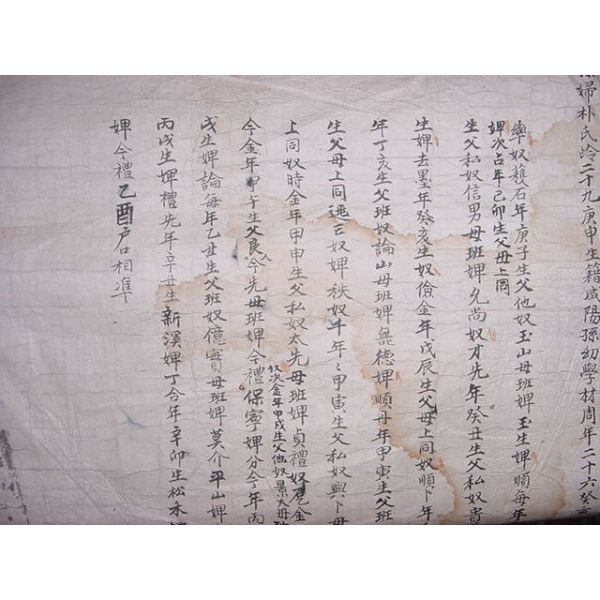 婦朴氏岭二十九庚申生籍咸陽孫幼學材周年二十六癸
率奴額石年庚子生父他奴玉山母班婢玉生婢順每年
婢次占年己卯生父母上同
生父私奴信男母班婢允尚奴才先年癸丑生父私奴貴
生婢去墨年癸亥生奴儉金年戊辰生父母上同奴順卜年
年丁亥生父班奴論山母班婢無德婢順母年甲寅生父班
生父母上同逃亡奴婢秩奴千年年甲寅生父私奴興卜母
上同奴時金年甲申生父私奴太先母班婢貞禮奴尾金
奴次金年甲戌生父他奴景夫母
今金年甲午生父良人今先母班婢今禮保寧婢分今年丙
戌生婢論每年乙丑生父班奴億實母班婢莫介平山婢
丙戌生婢禮先年辛丑生新溪婢丁合年辛卯生松禾
婢今禮乙酉戶口相準